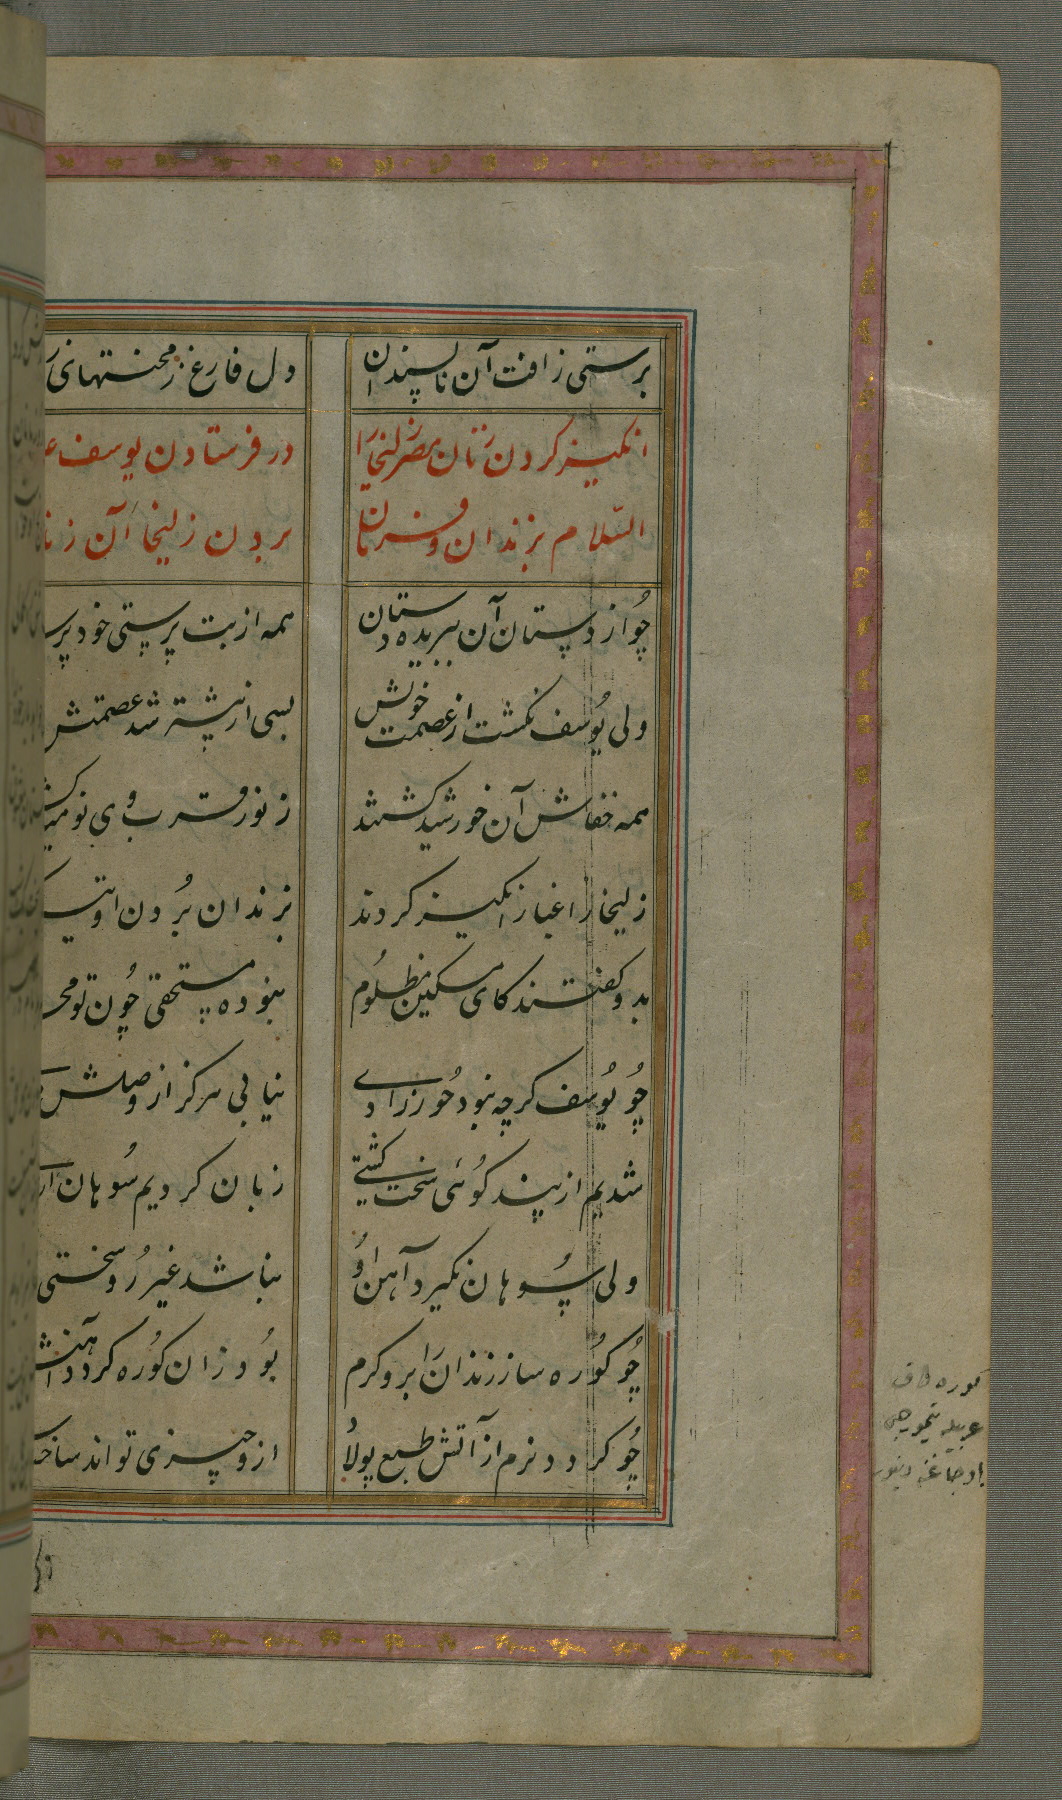 برستی ز آفت آن ناپسندان دل فارغ ز محنتهای
انکیز کردن زنان مصر زلیخا را در فرستادن یوسف
السّلام بزندان و فرمان بردن زلیخا آن
چو از دستان آن ببریده دستان همه از بت پرستی خود
ولی یوسف نکشت از عصمت خویش بسی از پیشتر شد عصمتش
همه خفاش آن خورشید کشتند ز نور قرب وی
زلیخا را غبار انکیز کردند بزندان بُردن او
بدو کفتند کای مسکین مظلوم نبوده مستحقی چون تو
چو یوسف کرچه نبود حورزادی نیابی هرکز از وصلش
شدیم از پند کوئی سخت کشتی زبان کردیم سُوهان
ولی سُوهان نکیرد آهن او نباشد غیر رو سختی
چو کوره ساز زندان را برو کرم بُود زان کوره کردد
چو کردد نرم از آتش طبع پولاد ازو چیزی تواند